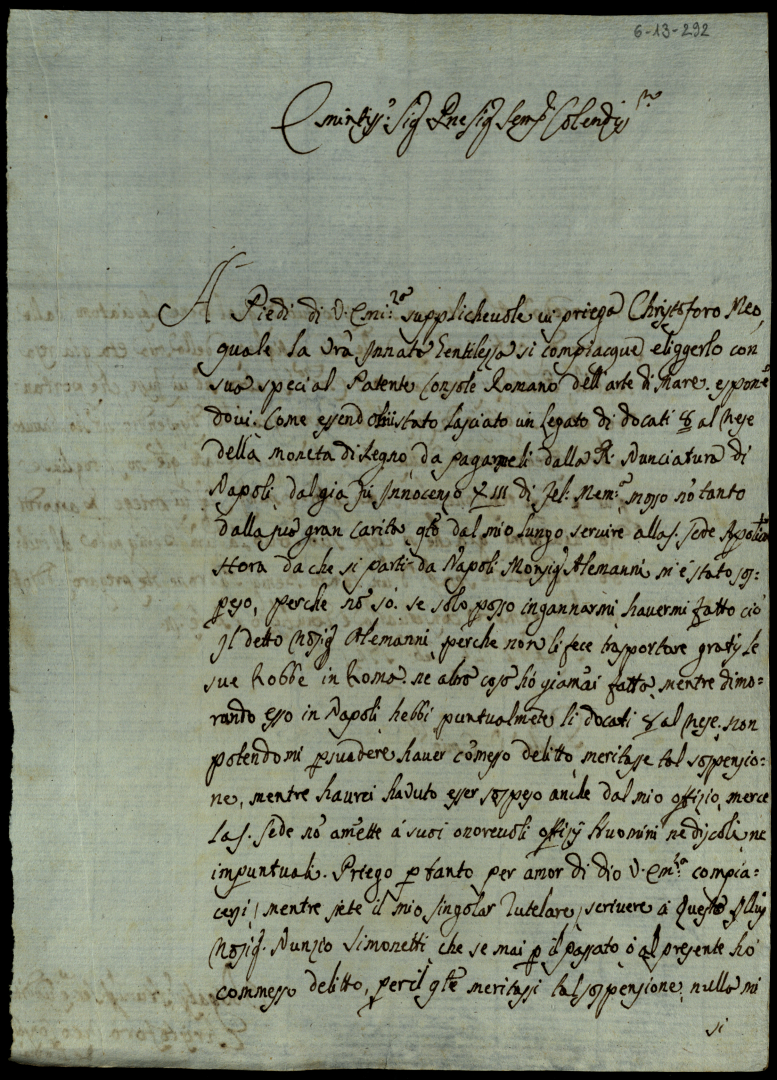 6-13-292
Emintiss.o Sig Pne Sig Semp Colendiss.mo
A Piedi di V. Emi:za supplichevole vi priega Christoforo Meo,
quale la vra Innata Gentilezza si compiacque eliggerlo con
sua special Patente Console Romano dell'arte di Mare. esponen=
dovi. Come essendoli stato lasciato un legato di docati 8 al Mese
della moneta di Regno da pagarmeli dalla R. Nunciatura di
Napoli, dal gia fu Innocenzo XIII di fel: Mem:a mosso nō tanto
dalla sua gran carità, qto dal mio lungo servire alla S. Sede Apolica
Hora da che si partì da Napoli Monsig.r Alemanni m'è stato sos=
peso, perche nō sò. se solo posso ingannarmi havermi fatto ciò
Il detto Mosig.r Alemanni, perche non li fece trasportare gratis le
sue Robbe in Roma. ne altra cosa hò giamai fatta, mentre dimo=
rando esso in Napoli hebbi puntualmēte li docati 8 al Mese. non
potendomi psuadere haver cōmesso delitto, meritasse tal sospensio=
ne, mentre haurei havuto esser sospeso anche dal mio offizio, merce
la S. Sede nō amette à suoi onorevoli offizij Huomini ne discoli, ne
impuntuali. Priego p tanto per amor di dio V. Em:za compia=
cersi, mentre siete il mio singolar Tutelare, scrivere à questo Illus
Mosig.r Nunzio Simonetti, che se mai p il passato ò al presente hò
commesso delitto, per il qle meritassi tal sospensione, nulla mi
si